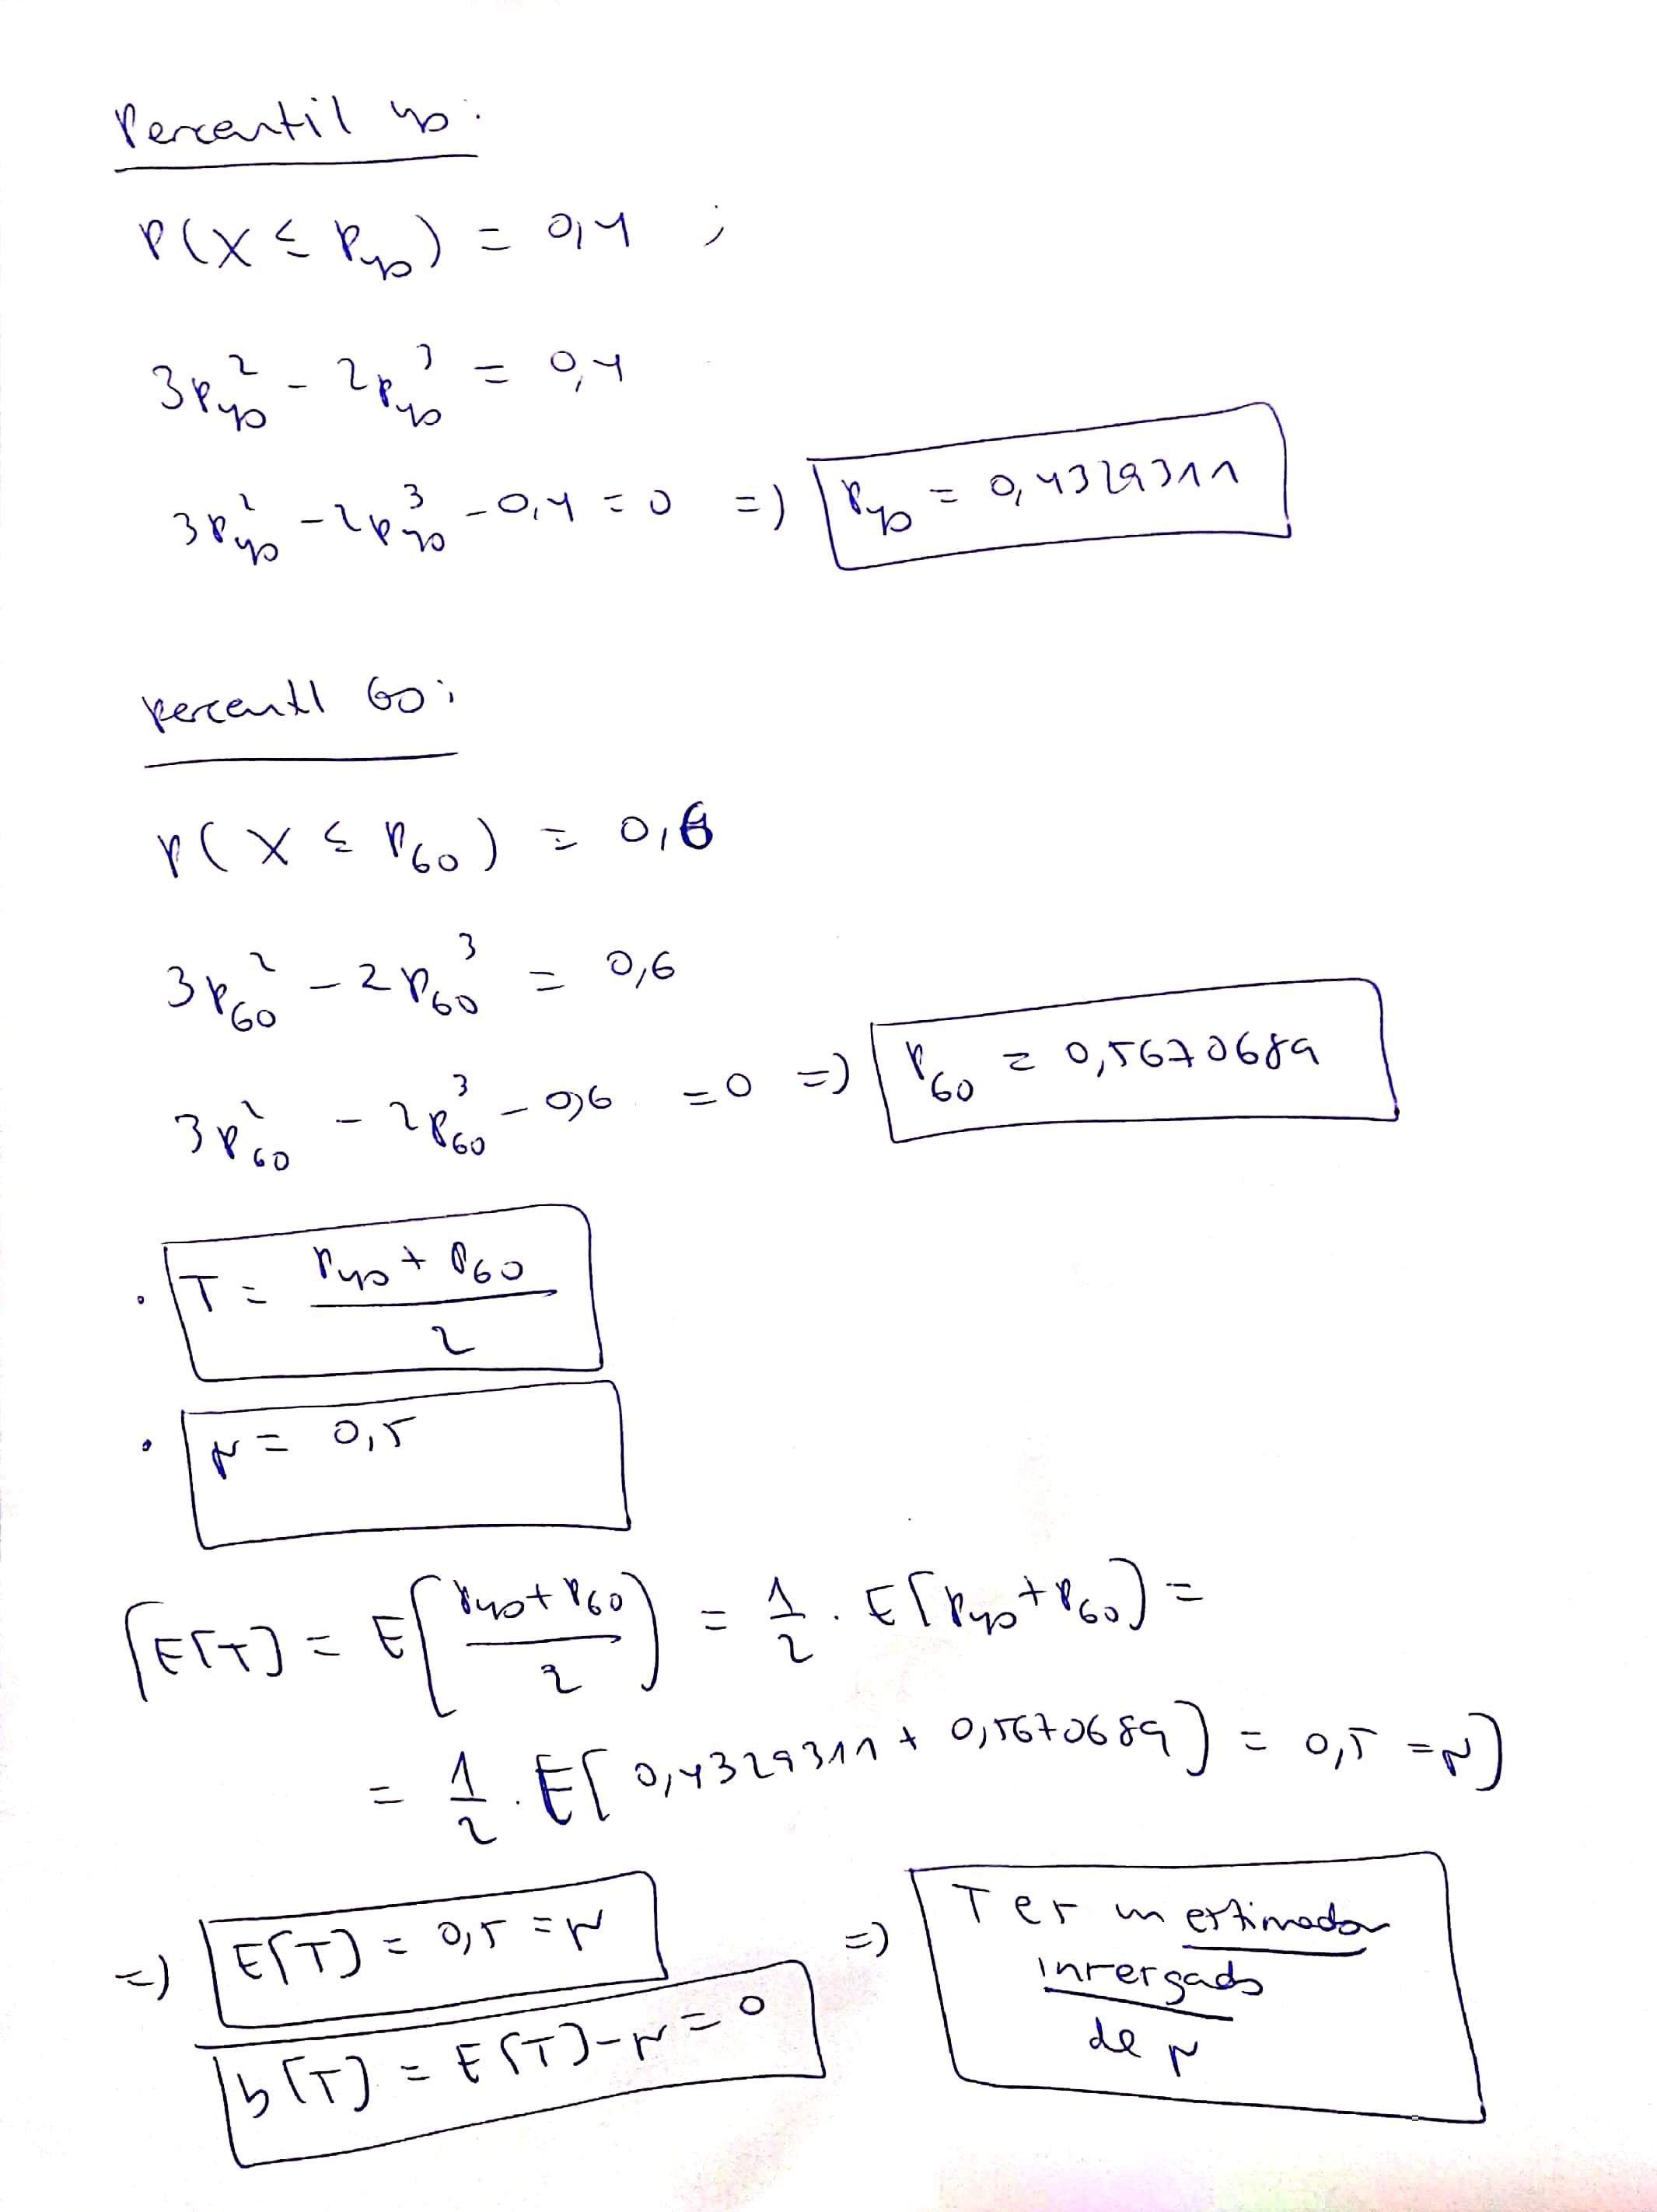 Percentil 40:
P(X ≤ P₄₀) = 0,4 ;
3P₄₀² - 2P₄₀³ = 0,4
3P₄₀² - 2P₄₀³ - 0,4 = 0 => P₄₀ = 0,4329311
Percentil 60:
P(X ≤ P₆₀) = 0,6
3P₆₀² - 2P₆₀³ = 0,6
3P₆₀² - 2P₆₀³ - 0,6 = 0 => P₆₀ = 0,5670689
• T = (P₄₀ + P₆₀)/2
• μ = 0,5
[E[T] = E[(P₄₀ + P₆₀)/2] = 1/2 · E[P₄₀ + P₆₀] =
= 1/2 · E[0,4329311 + 0,5670689] = 0,5 = μ]
=> E[T] = 0,5 = μ
b[T] = E[T] - μ = 0
=> T es un estimador
insesgado
de μ